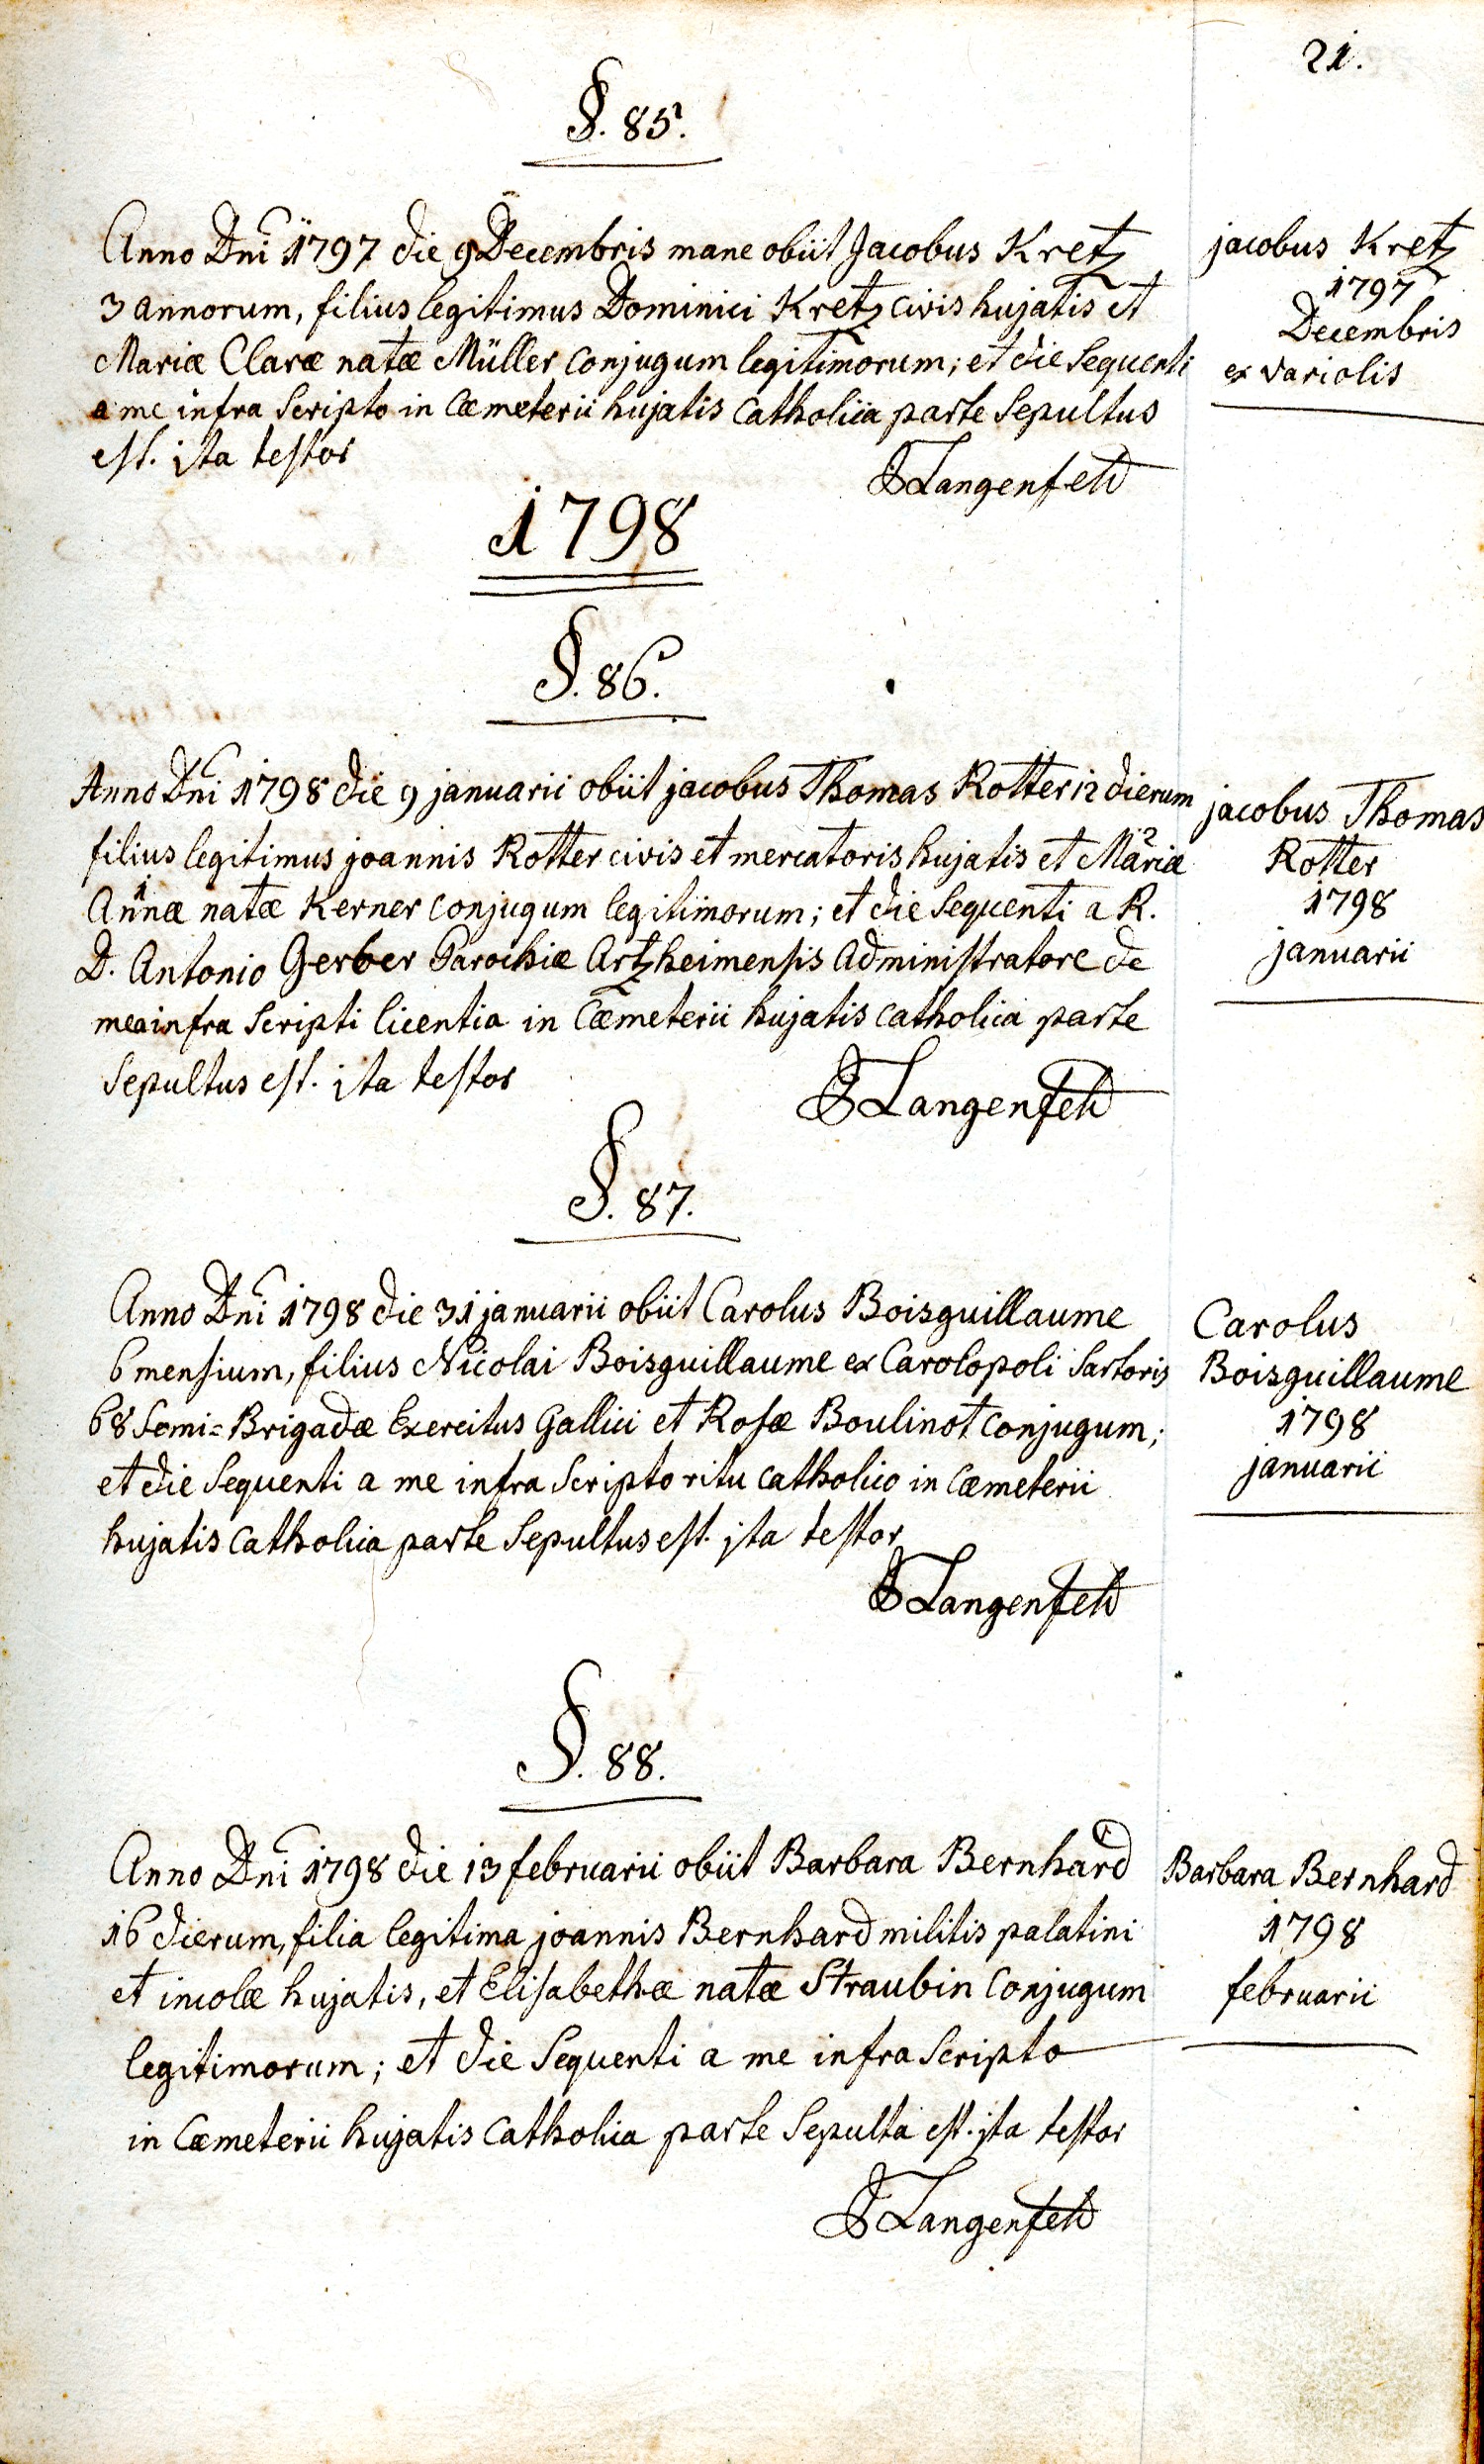 21.
§. 85.
Anno Dni 1797 die 9 Decembris mane obiit Jacobus Kretz
3 annorum, filius legitimus Dominici Kretz civis hujatis et
Mariæ Claræ natæ Müller conjugum legitimorum; et die sequenti
a me infra scripto in Cœmeterii hujatis catholica parte sepultus
est. ita testor
JLangenfeld
jacobus Kretz
1797
Decembris
ex variolis
1798
§. 86.
Anno Dni 1798 die 9 januarii obiit jacobus Thomas Rotter 12 dierum
filius legitimus joannis Rotter civis et mercatoris hujatis et Mariæ 2
Annæ 1 natæ Kerner conjugum legitimorum; et die sequenti a R.
D. Antonio Gerber Parochiæ Artzheimensis administratore de
mea infra scripti licentia in Cœmeterii hujatis catholica parte
sepultus est. ita testor
JLangenfeld
jacobus Thomas
Rotter
1798
januarii
§. 87.
Anno Dni 1798 die 31 januarii obiit Carolus Boisguillaume
6 mensium, filius Nicolai Boisguillaume ex Carolopoli sartoris
68 Semi=Brigadæ Exercitus Gallici et Rosæ Boulinot conjugum;
et die sequenti a me infra scripto ritu catholico in cœmeterii
hujatis catholica parte sepultus est. ita testor
JLangenfeld
Carolus
Boisguillaume
1798
januarii
§. 88.
Anno Dni 1798 die 13 februarii obiit Barbara Bernhard
16 dierum, filia legitima joannis Bernhard militis palatini
et incolæ hujatis, et Elisabethæ natæ Straubin conjugum
legitimorum; et die sequenti a me infra scripto
in Cœmeterii hujatis catholica parte sepulta est. ita testor
JLangenfeld
Barbara Bernhard
1798
februarii